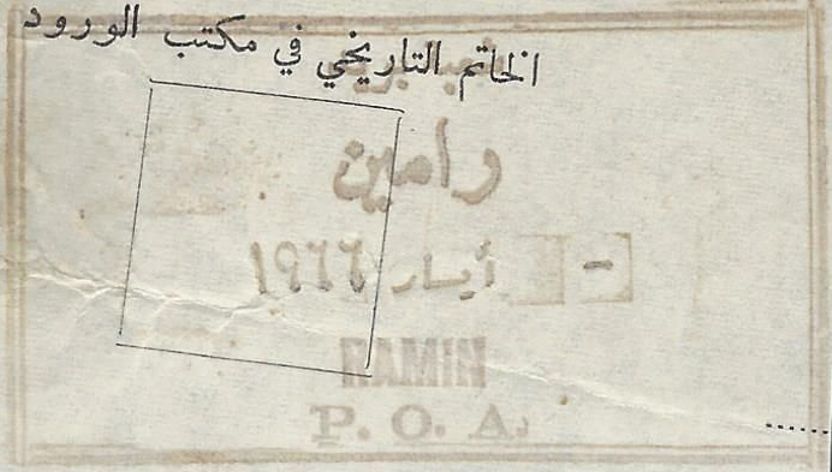 الخاتم التاريخي في مكتب الورود
رامين
- أيار ١٩٦٦
RAMIN
P. O. A.